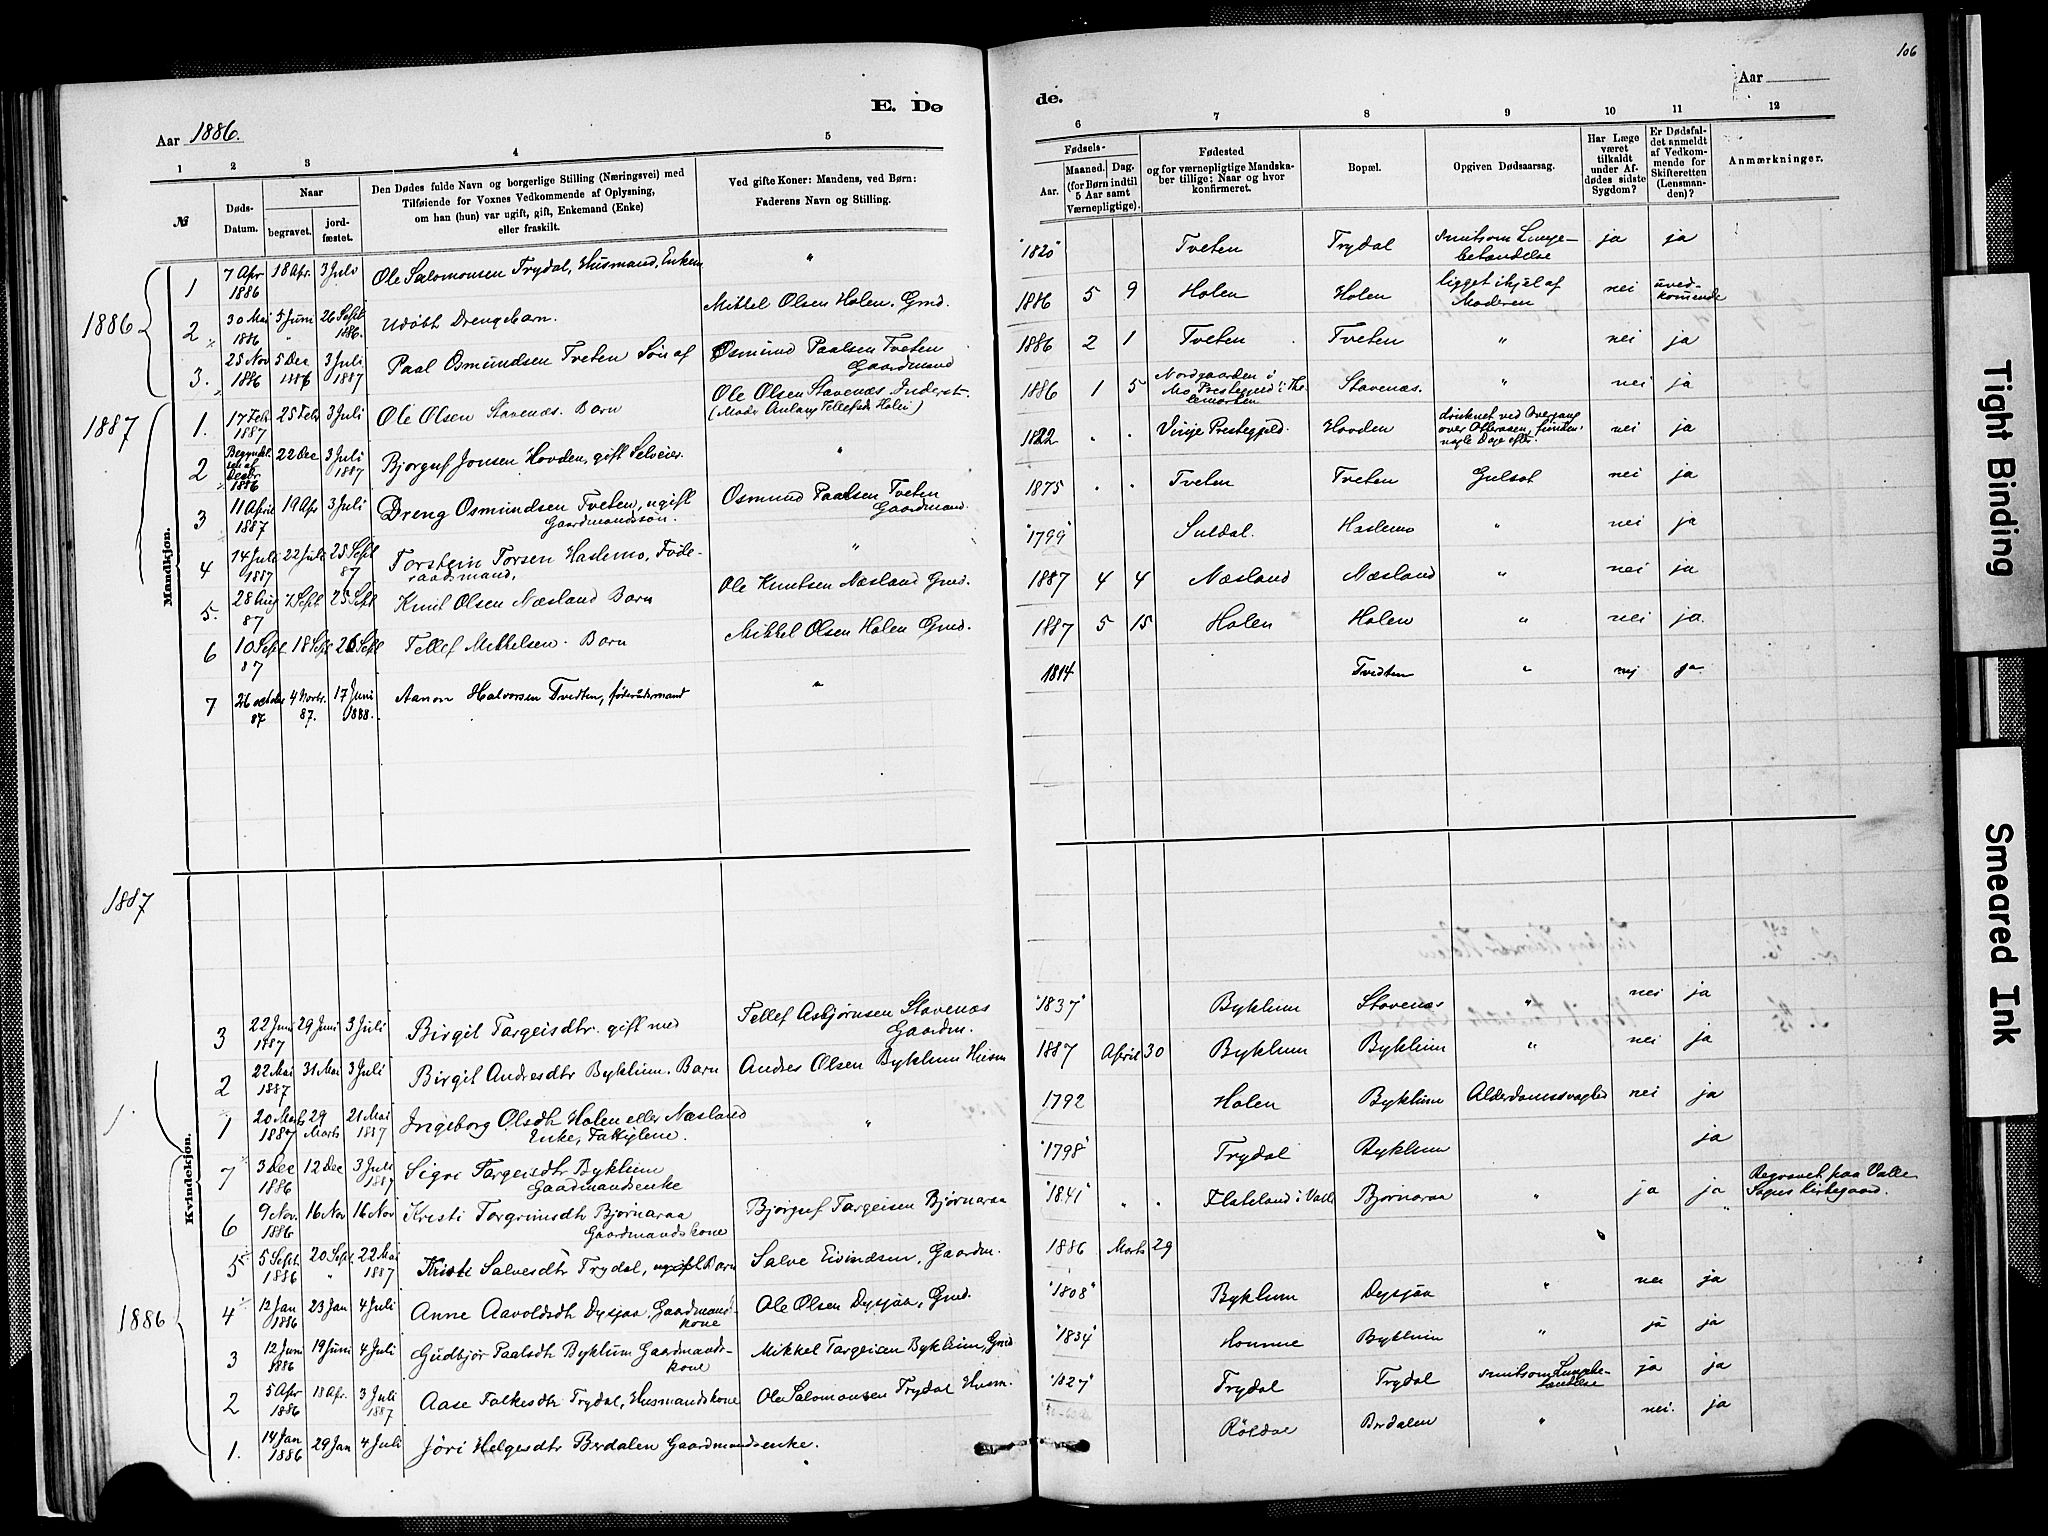 106
E. Dø
de.
Aar 1886.
Aar
1 2 3 4 5
6 7 8 9 10 11 12
№
Døds-Datum.
Naar
begravet.
jord-fæstet.
Den Dødes fulde Navn og borgerlige Stilling (Næringsvei) med
Tilføiende for Voxnes Vedkommende af Oplysning,
om han (hun) var ugift, gift, Enkemand (Enke)
eller fraskilt.
Ved gifte Koner: Mandens, ved Børn:
Faderens Navn og Stilling.
Fødsels-
Aar.
Maaned. Dag.
(for Børn indtil
5 Aar samt
Værnepligtige).
Fødested
og for værnepligtige Mandska-
ber tillige: Naar og hvor
konfirmeret.
Bopæl.
Opgiven Dødsaarsag.
Har Læge
været
tilkaldt
under Af-
dødes sidste
Sygdom?
Er Dødsfal-
det anmeldt
af Vedkom-
mende for
Skifteretten
(Lensman-
den)?
Anmærkninger.
Mandkjøn.
1886
1 7 Apr 1886 18 Apr. 3 Juli Ole Salomonsen Trydal, Husmand, Enkem " "1820" Tveten Trydal smitsom Lunge-betændelse ja ja
2 30 Mai 1886 5 Juni " 26 Sept 1886. Udøbt Drengebarn. Mikkel Olsen Holen, Gmd. 1886 5 9 Holen Holen ligget ihjel af Moderen nei uved-komende
3. 25 Nov 1886 5 Dec 1886 3 Juli 1887 Paal Osmundsen Tveten Søn af Osmund Paalsen Tveten Gaardmand 1886 2 1 Tveten Tveten " nei ja
1887
1. 17 Febr 1887 25 Febr 3 Juli Ole Olsen Stavenæs. Barn Ole Olsen Stavenæs. Inderst. (Moder Anlaug Tellefsdr Holen) 1886 1 5 Nordgaarden i Mo Prestegjeld i Thelemarken Stavenæs. " nei ja
2 Begyndelsen af Decbr 1886 22 Dec 3 Juli 1887 Bjorguf Jonsen Hovden, gift Selveier. " 1822 " " Vinje Prestegjeld. Hovden druknet ved Overgang over Otteraaen, funden nogle Dage efter. nei ja
3 11 April 1887 19 Apr 3 Juli Dreng Osmundsen Tveten, ugift Gaardmandssøn. Osmund Paalsen Tveten Gaardmand. 1875 " " Tveten Tveten Gulsot nei ja
4 14 Juli 1887 22 Juli 25 Sept 87 Torstein Torsen Haslemo, Føde-raadsmand, " "1799" Suldal. Haslemo " nei ja
5. 28 Aug 87 7 Sept 25 Sept Knut Olsen Næsland Barn Ole Knutsen Næsland Gmd. 1887 4 4 Næsland Næsland " nei ja
6 10 Sept 87 18 Sept 26 Sept Tellef Mikkelsen. Barn Mikkel Olsen Holen Gmd. 1887 5 15 Holen Holen " nei ja.
7 26 october 87 4 Novbr. 87. 17 Juni 1888. Aanon Halvorsen Tvedten, føderådsmand " 1814 Tvidten " nej ja
1887
Kvindekjøn.
3 22 Juni 1887 29 Juni 3 Juli Birgit Targeisdtr. gift med Tellef Asbjørnsen Stavenæs Gaardm. "1837" Byklum Stavenæs " nei ja
2 22 Mai 1887 31 Mai 3 Juli Birgit Andresdtr Byklum. Barn Andres Olsen Byklum Husm 1887 April 30 Byklum Byklum " nei ja
1 20 Marts 1887 29 Marts 21 Mai 1887 Ingeborg Olsdtr Holen eller Næsland Enke, Fattiglem. " 1792 Holen Byklum Alderdomssvaghed nei ja
7 3 Dec 1886 12 Dec 3 Juli 1887 Sigri Targeisdtr Byklum Gaardmandsenke "1798" Trydal Byklum ja
6 9 Nov. 1886 16 Nov 16 Nov Kristi Torgrimsdtr Bjørnaraa Gaardmandskone Bjorguf Targeisen Bjørnaraa "1841" " " Flateland i Valle Bjørnaraa " ja ja Begravet paa Valle Sogns Kirkegaard.
5 5 Sept. 1886 20 Sept. " 22 Mai 1887 Salvesdtr Trydal, ugift Barn Salve Eivindsen, Gaardm. 1886 Marts 29
1886
4 12 Jan 1886 23 Jan 4 Juli Anne Aavoldsdtr Dysjaa, Gaardmands-kone Ole Olsen Dysjaa, Gmd. "1808" Byklum Dysjåa " nei ja
3 12 Juni 1886 19 Juni 4 Juli Gudbjør Paalsdtr Byklum Gaardmands-kone Mikkel Targeisen Byklum, Gmd "1834" Homme Byklum " ja ja
2 5 Apr 1886 18 Apr. 3 Juli 1887 Aase Folkesdtr Trydal, Husmandskone Ole Salomonsen Trydal Husm. "1827" Trydal Trydal smitsom Lungebe-tændelse ja ja
1. 14 Jan 1886 29 Jan 4 Juli Jøri Helgesdtr Berdalen Gaardmandsenke. Röldal Berdalen " nei. ja
Tight Binding
Smeared Ink